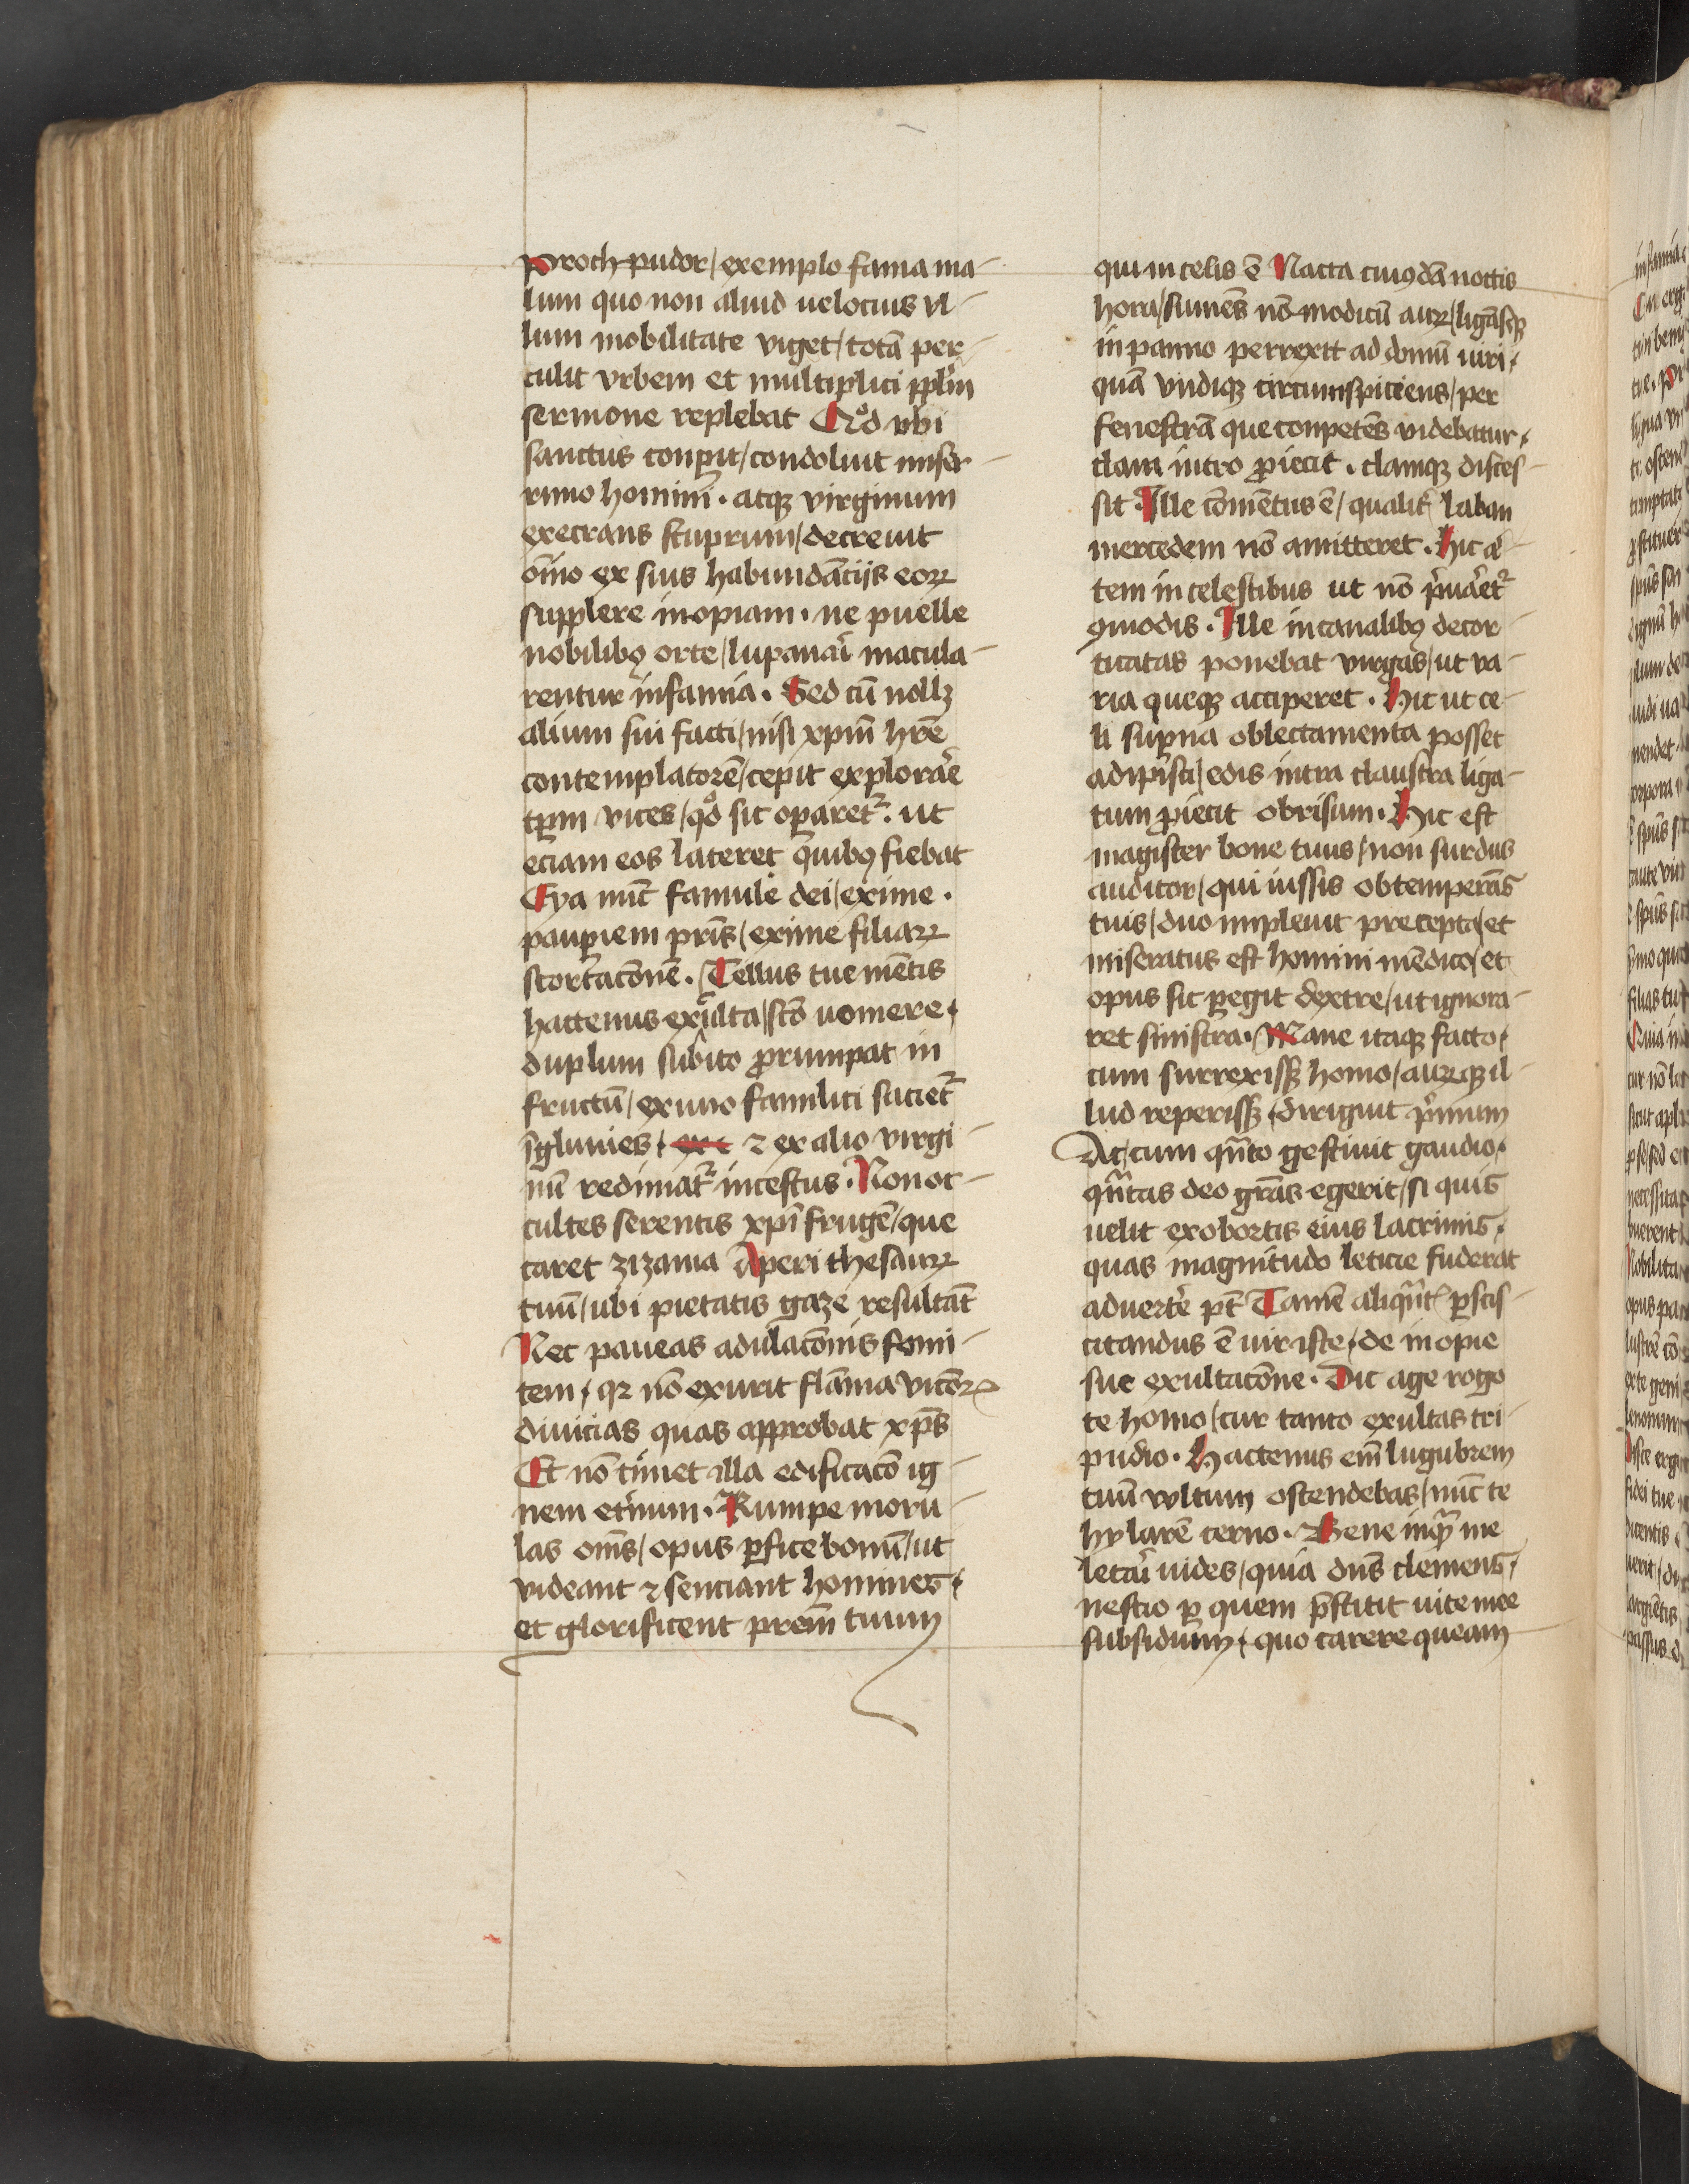 Proch pudor / exemplo fama ma-
lum quo non aliud uelocius vl-
lum mobilitate viget / totã per-
culit vrbem et multiplici pplm̃
sermone replebat Qd̊ vbi
sanctus conperit / condoluit miser-
rimo homini · atqꝫ virginum
execrans stuprum / decreuit
om̃no ex suis habundãcijs eoꝝ
supplere inopiam · ne puelle
nobilibꝰ orte / lupanari macula-
rentur infamia · Sed cũ nollꝫ
alium sui facti / nisi xp̃m hr̃e
contemplatorẽ / cepit explorare
tꝑm vices / qd̊ sic oꝑaretᷣ · ut
eciam eos lateret quibꝰ fiebat
Eya nũc famule dei / exime ·
pauꝑiem pr̃is / exime filiaꝝ
scortacõnẽ · Tellus tue mẽtis
hactenus exculta / sc̃o uomere ·
duplum subito ꝓrumpat in
fructũ / ex uno famulici sacietᷣ
ĩgluuies · ex 
⁊ ex alio virgi-
nũ redimatᷣ incestus · Non oc-
cultes serentis xp̃i frugẽ / que
caret zizania Aperi thesauꝝ
tuũ / ubi pietatis gaze resultãt
Nec paueas adulacõnis fomi-
tem · qꝛ nõ exurit flãma vicioꝝ
diuicias quas approbat xp̃s
Et nõ timet illa edificacõ ig-
nem et̃num · Rumpe moru-
las om̃s / opus ꝑfice bonũ / ut
videant ⁊ senciant homines ·
et glorificent prẽm tuum
qui in celis ẽ Nacta cuiꝰdã noctis
hora / sumẽs nõ modicũ auꝝ / ligãsqꝫ
in panno perrexit ad domũ uiri ·
quã vndiqꝫ circumspiciens / per
fenestrã que conpetẽs videbatur ·
clam intro ꝓiecit · clamqꝫ disces-
sit · Ille cõmẽtus ẽ / qualit̃ laban
mercedem nõ amitteret · Hic a᷑-
tem in celestibus ut nõ pͥuaretᷣ
ꝯmodis · Ille in canalibꝰ decor-
ticatas ponebat virgas / ut va-
ria queqꝫ acciperet · Hic ut ce-
li suꝑna oblectamenta posset
adipisci / edis intra claustra liga-
tum ꝓiecit obrisum · Hic est
magister bone tuus / non surdus
auditor / qui iussis obtemperãs
tuis / duo impleuit precepta / et
miseratus est homini mẽdico / et
opus sic ꝑegit dextre / ut ignora-
ret sinistra · Mane itaqꝫ facto ·
cum surrexissꝫ homo / auꝝqꝫ il-
lud reperissꝫ · diriguit pͥmum
Ac / cum qũto gestiuit gaudio ·
qũtas deo gr̃as egerit / si quis
uelit ex obortis eius lacrimis ·
quas magnitudo leticie fuderat
aduertere pt̃ Tamẽ aliqũt̃ ꝑscis-
citandus ẽ uir iste · de inopie
sue exultacõne · Dic age rogo
te homo / cur tanto exultas tri-
pudio · Hactenus em̃ lugubrem
tuũ vultum ostendebas / nũc te
hylarẽ cerno · Bene inqͣ me
letari uides / quia dñs clemens ·
nescio ꝑ quem p̃stitit uite mee
subsidium · quo carere queam